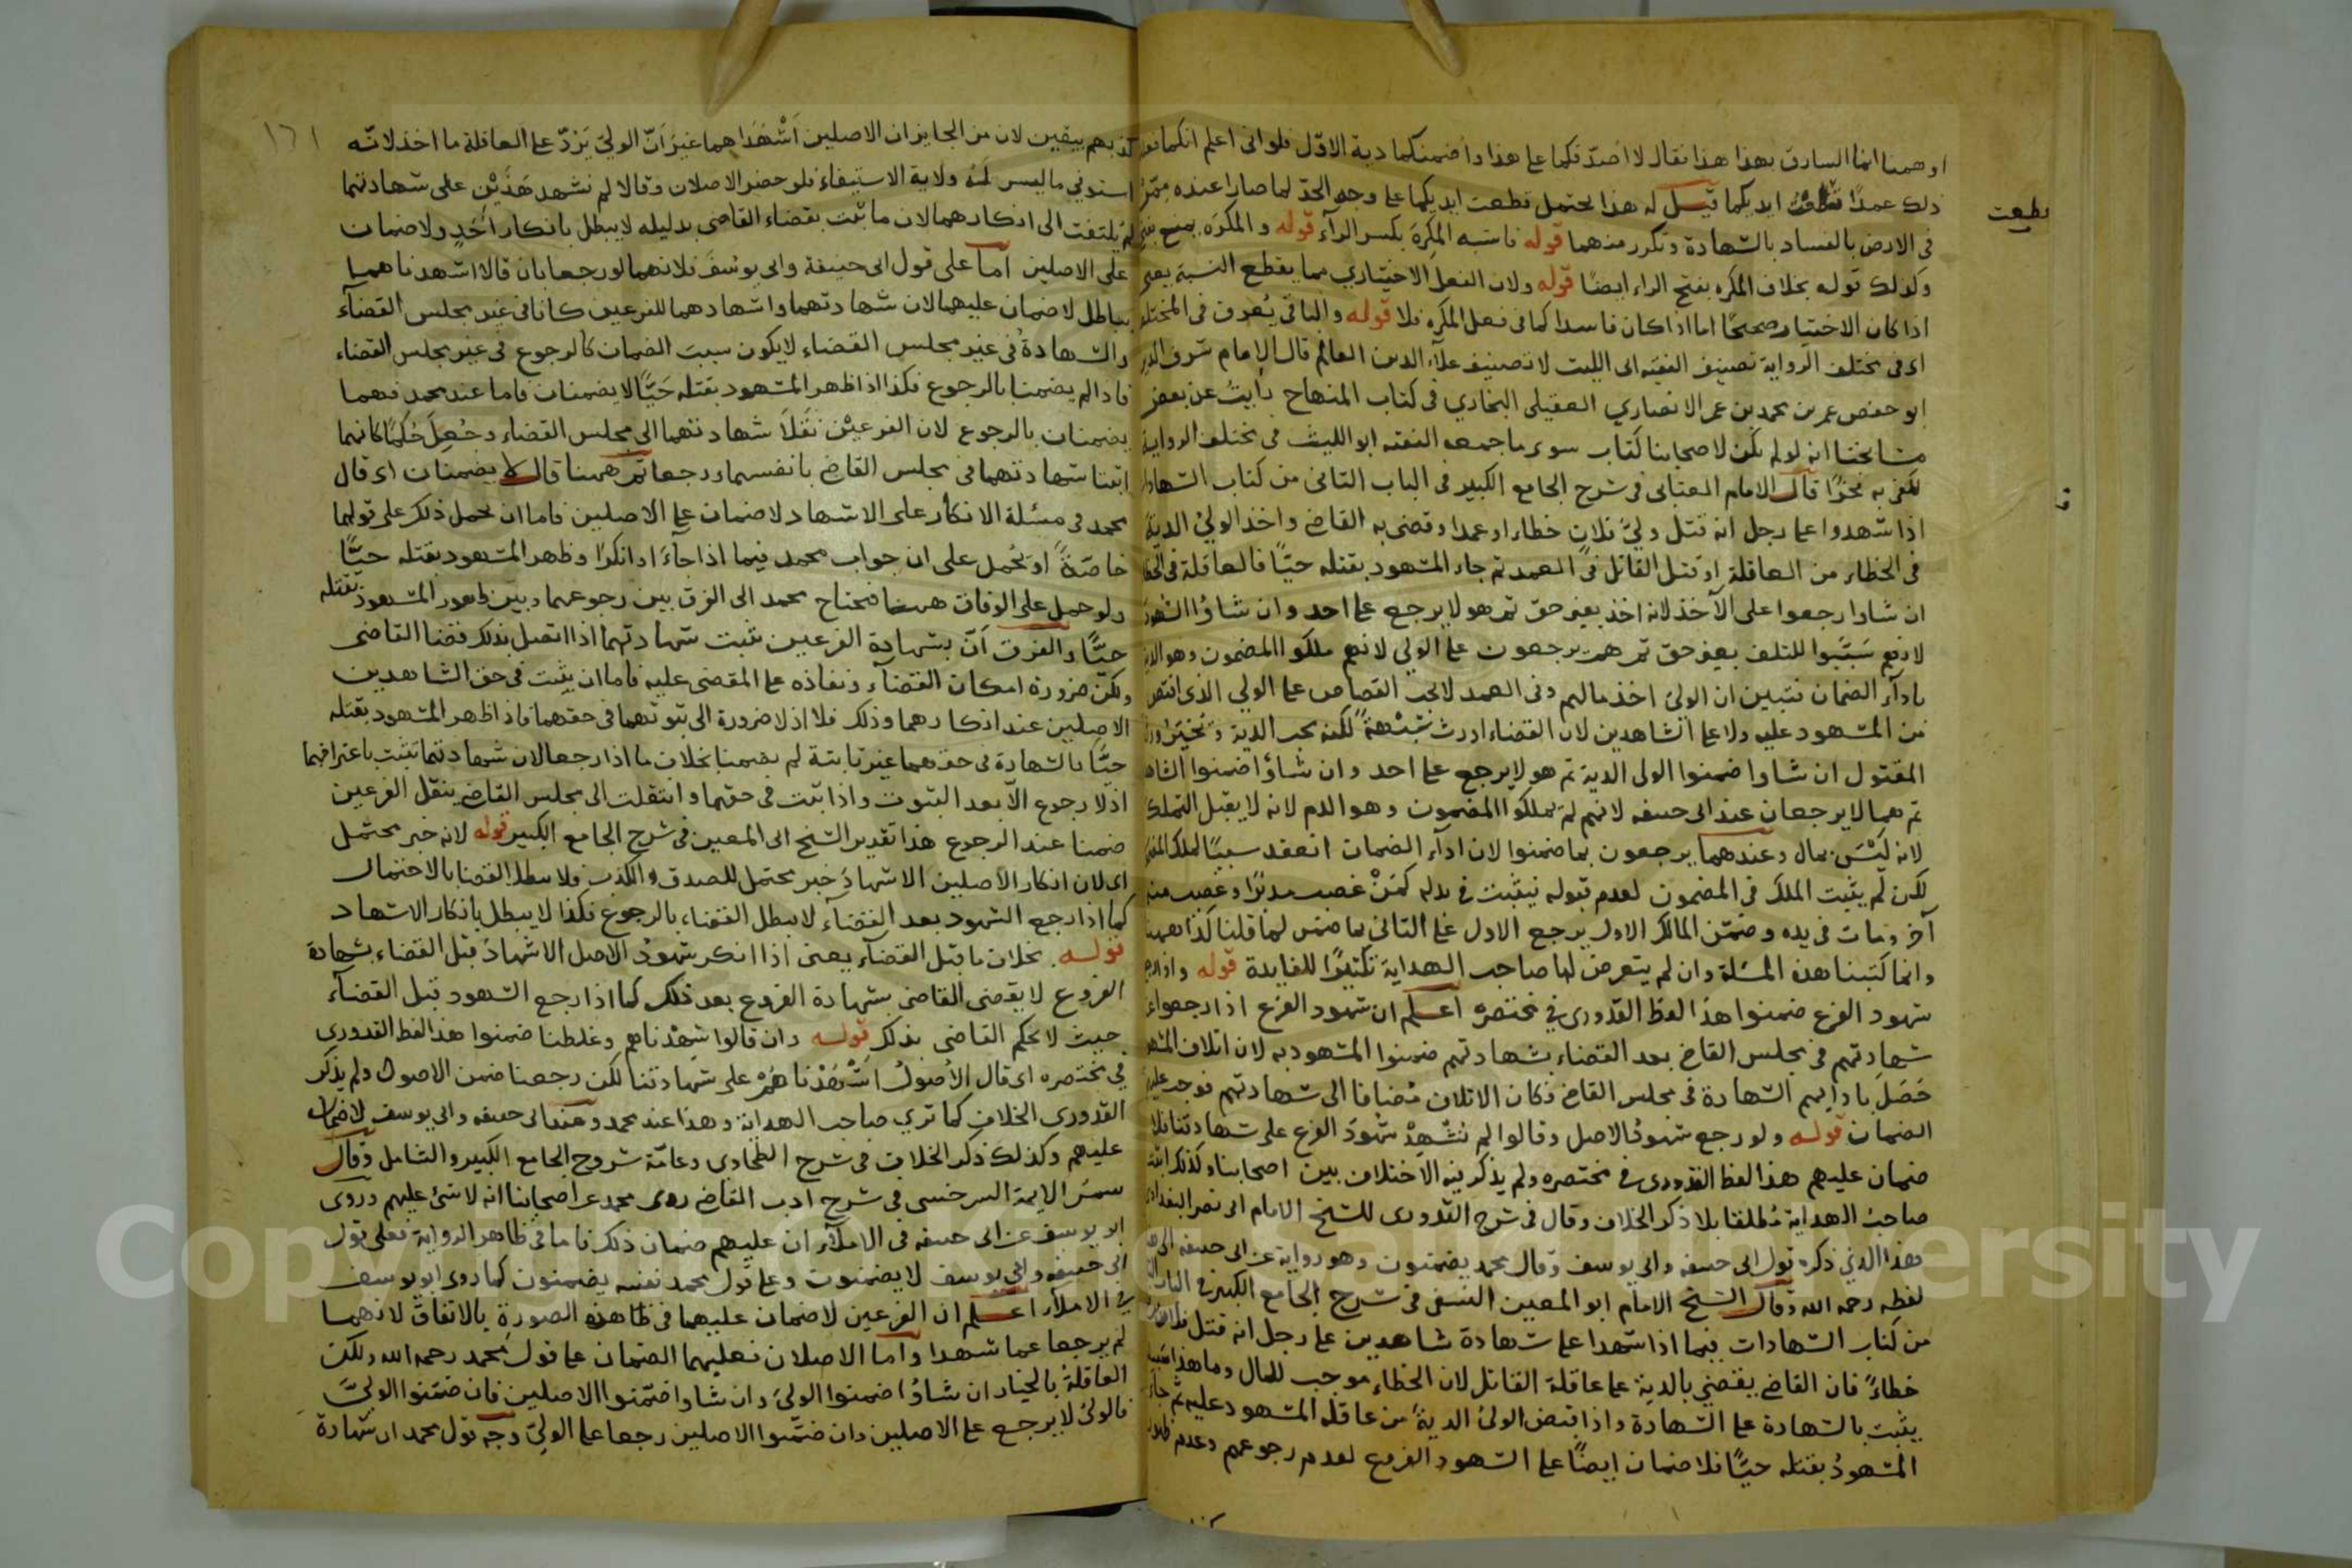 اوهمنا انما السارق هذا فقال لا اصدقكما على هذا واضمنكما دية الاول فلو انى اعلم انكما
ذلك عمدًا ايديكما قيل له هذا يحتمل قطعت ايديكما على وجه الحدّ لما صارا عنده
قطعت
فى الارض بالفساد بالشهادة وتكرر منهما قوله فاشبه المكرِه بكسر الرآء قوله والمكرَه
وكذلك قوله بخلاف المكره بفتح الراء ايضًا قوله ولان الفعل الاختياري مما يقطع النسبة يعنى
اذا كان الاختيار صحيحًا اما اذا كان فاسدا كما فى فعل المكره فلا قوله والباقى يُعرف فى المختلف
اى فى مختلف الرواية تصنيف الفقيه ابى الليث لا تصنيف علآء الدين العالم قال الامام شرف الدين
ابو حفص عمر بن محمد بن عمر الانصاري العقيلى البخاري فى كتاب المنهاج رأيتُ عن بعض
مشايخنا انه لو لم يكن لاصحابنا كتاب سوى ما جمعه الفقيه ابو الليث فى مختلف الرواية
لكفى به فخرًا قال الامام العتابى فى شرح الجامع الكبير فى الباب الثانى من كتاب الشهادات
اذا شهدوا على رجل انه قتل وليّ فلان خطاء او عمدا وقضى به القاضى واخذ الولىُ الدية
فى الخطاء من العاقلة او قتل القاتل فى العمد ثم جاء المشهود بقتله حيًّا فالعاقلة فى
ان شاوا رجعوا على الآخذ لانه اخذ بغير حق ثم هو لا يرجع على احد وان شاؤا الشهود
لانهم سَبَّبوا للتلف بغير حق ثم هم يرجعون على الولى لانهم ملكوا المضمون وهو
بادآء الضمان فتبين ان الولىَ اخذ مالهم وفى العمد لا يجب القصاص على الولى الذى اقتص
من المشهود عليه ولا على الشاهدين لان القضاء اورث شُبْهةً لكنه يجب الدية
المقتول ان شاوا ضمنوا الولى الدية ثم هو لا يرجع على احد وان شاؤا ضمنوا
ثم هما لا يرجعان عند ابى حنيفه لانهم لم يملكوا المضمون وهو الدم لانه لا يقبل التملك
لانه لَيْسَ بمال وعندهما يرجعون بما ضمنوا لان ادآء الضمان انعقد سببًا لملك
لكن لم يثبت الملك فى المضمون لعدم قبوله فيثبت فى بدله كمَنْ غصب مدبّرًا وغصب منه
آخر ومات فى يده وضمّن المالك الاول يرجع الاول على الثانى بما ضمن لما قلنا كذا ههنا
وانما كتبنا هذه المسئلة وان لم يتعرض لها صاحب الهداية تكثيرًا للفايدة قوله واذا
شهود الفرع ضمنوا هذا لفظ القدورى فى مختصره اعلم ان شهود الفرع اذا رجعوا عن
شهادتهم فى مجلس القاضى بعد القضاء بشهادتهم ضمنوا المشهود به لان اتلاف
حَصَلَ بادايهم الشهادة فى مجلس القاضى فكان الاتلاف مُضافا الى شهادتهم فوجب
الضمان قوله ولو رجع شهودُ الاصل وقالوا لم نُشْهِدْ شهودَ الفرع على شهادتنا فلا
ضمان عليهم هذا لفظ القدورى فى مختصره ولم يذكر فيه الاختلاف بين اصحابنا وكذلك
صاحبُ الهداية مُطلقا بلا ذكر الخلاف وقال فى شرح القدورى للشيخ الامام ابى نصر البغدادى
وهذا الذي ذكره قول ابى حنيفه وابى يوسف وقال محمد يضمنون وهو رواية عن ابى حنيفه
لفظه رحمه الله وقال الشيخ الامام ابو المعين النسفى فى شرح الجامع الكبير فى الباب
من كتاب الشهادات فيما اذا شهدا على شهادة شاهدين على رجل انه قتل فلانا
خطاءً فان القاضى يقضى بالدية على عاقلة القاتل لان الخطاء موجب للمال وما هذا
يثبت بالشهادة على الشهادة واذا قبض الولىُ الديةَ من عاقلة المشهود عليه ثم جاء
المشهودُ بقتله حيًّا فلا ضمان ايضًا على الشهود الفروع لعدم رجوعهم وعدم
١٦١
كذبهم بيقين لان من الجايز ان الاصلين اَشْهَدَاهما غيرَ اَنّ الولىّ يَرُدّ على العاقلة ما اخذ لانّه
استوفى ما ليس لَهُ ولاية الاستيفاء فلو حضر الاصلان وقالا لم نشهد هَذَيْنِ على شهادتنا
لم يلتفت الى انكارهما لان ما ثبت بقضاء القاضى بدليله لا يبطل بانكار اَحَدٍ ولا ضمان
على الاصلين اما على قول ابى حنيفة وابى يوسُفَ فلانهما لو رجعا بان قالا اشهدناهما
بباطل لا ضمان عليهما لان شهادتهما واشهادهما للفرعين كانا فى غير مجلس القضآء
والشهادةُ فى غير مجلس القضاء لا يكون سببَ الضمان كالرجوع فى غير مجلس القضاء
فاذا لم يضمنا بالرجوع فكذا اذا ظهر المشهود بقتله حَيًّا لا يضمنان فاما عند محمد فهما
يضمنان بالرجوع لان الفرعيْن نَقَلاَ شهادتهما الى مجلس القضاء وجُعِلَ حُكمًا كانهما
اثبتا شهادتهما فى مجلس القاضى بانفسهما ورجعا ثم ههنا قال لا يضمنان اى قال
محمد فى مسئلة الانكار على الاشهاد لا ضمان على الاصلين فاما ان يحمل ذلك على قولهما
خاصّةً او يُحْمل على ان جواب محمد فيما اذا جآءَ او انكرا وظهر المشهود بقتله حيًّا
ولو حمل على الوفاق ههنا فيحتاج محمد الى الفرق بين رجوعهما وبين ظهور المشهود بقتله
حيًّا والفرق اَنّ بشهادة الفرعين تثبت شهادتهما اذا اتصل بذلك قضا القاضى
ولكنّ ضرورة امكان القضآء ونفاذه على المقضى عليه فاما ان يثبت فى حق الشاهدين
الاصلين عند انكارهما وذلك فلا اذ لا ضرورة الى ثبوتهما فى حقهما فاذا ظهر المشهود بقتله
حيًّا بالشهادة فى حقهما غير ثابتة لم يضمنا بخلاف ما اذا رجعا لان شهادتهما تثبت باعترافهما
اذ لا رجوع الا بعد الثبوت واذا ثبت فى حقهما وانتقلت الى مجلس القاضى بنقل الفرعين
ضمنا عند الرجوع هذا تقدير الشيخ ابى المعين فى شرح الجامع الكبير قوله لانه خبر محتمل
اى لان انكار الاصلين الاشهادَ خبر محتمل للصدق والكذب فلا يبطل القضا بالاحتمال
كما اذا رجع الشهود بعد القضآء لا يبطل القضاء بالرجوع فكذا لا يبطل بانكار الاشهاد
قوله بخلاف ما قبل القضآء يعنى اذا انكر شهودُ الاصل الاشهادَ قبل القضاء بشهادة
الفروع لا يقضى القاضى بشهادة الفروع بعد ذلك كما اذا رجع الشهود قبل القضآء
حيث لا يحكم القاضى بذلك قوله وان قالوا شهِدْناهم وغلطنا ضمنوا هذا لفظ القدورى
في مختصره اى قال الأُصُولُ اَشْهَدْنَاهُمْ على شهادتنا لكن رجعنا ضمن الاصول ولم يذكر
القدورى الخلاف كما تري صاحب الهداية وهذا عند محمد وعند ابى حنيفه وابى يوسف لا ضمان
عليهم وكذلك ذكر الخلاف فى شرح الطحاوى وعامّة شروح الجامع الكبير والشامل وقال
شمس الايمة السرخسى فى شرح ادب القاضى روى محمد عن اصحابنا انه لا شئ عليهم وروى
ابو يوسف عن ابى حنيفه فى الاملآء ان عليهم ضمان ذلك فاما فى ظاهر الرواية فعلى قول
ابى حنيفه وابى يوسف لا يضمنون وعلى قول محمد نفسه يضمنون كما روى ابو يوسف
فى الاملآء اعلم ان الفرعين لا ضمان عليهما فى هذه الصورة بالاتفاق لانهما
لم يرجعا عما شهدا واما الاصلان فعليهما الضمان على قول محمد رحمه الله ولكن
العاقلة بالخيار ان شاؤا ضمنوا الولىَ وان شاوا ضمّنوا الاصلين فان ضمّنوا الولىَّ
فالولىُ لا يرجع على الاصلين وان ضمّنوا الاصلين رجعا على الولىّ وجه قول محمد ان شهادة
Copyright © King Saud University